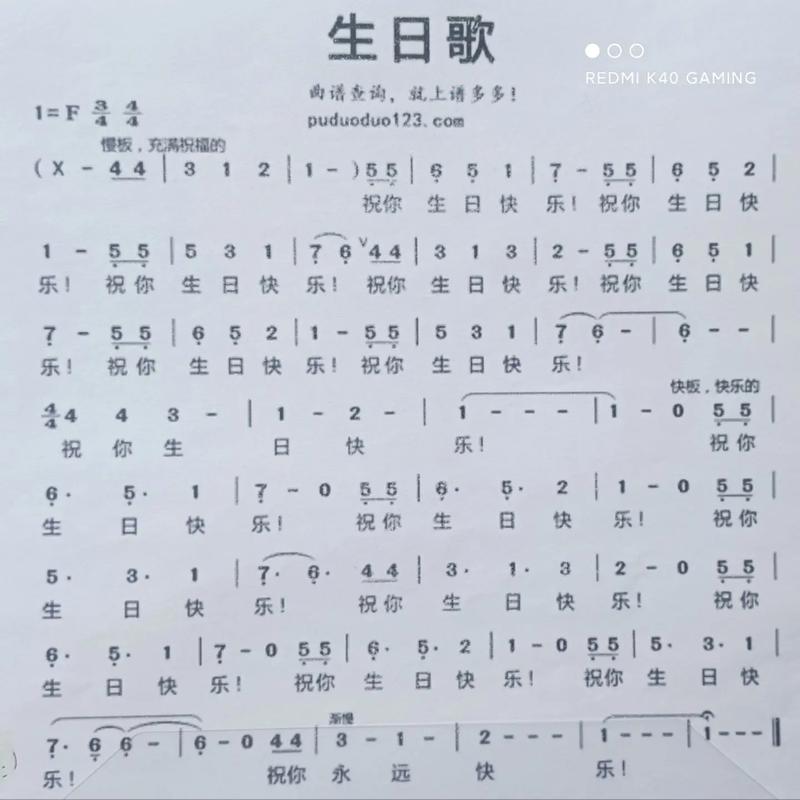 生日歌
REDMI K40 GAMING
曲谱查询，就上谱多多！
1=F 3/4 4/4
puduoduo123.com
慢板，充满祝福的
(X - 4 4 | 3 1 2 | 1 - ) 5̣ 5̣ | 6̣ 5̣ 1 | 7̣ - 5̣ 5̣ | 6̣ 5̣ 2 |
祝你 生 日 快 乐！ 祝你 生 日 快
1 - 5̣ 5̣ | 5 3 1 | 7̣ 6̣ V 4 4 | 3 1 3 | 2 - 5̣ 5̣ | 6̣ 5̣ 1 |
乐！ 祝你 生 日 快 乐！ 祝你 生 日 快 乐！ 祝你 生 日 快
7̣ - 5̣ 5̣ | 6̣ 5̣ 2 | 1 - 5̣ 5̣ | 5 3 1 | 7̣ 6̣ - | 6̣ - - |
乐！ 祝你 生 日 快 乐！ 祝你 生 日 快 乐！
快板，快乐的
4/4 4 4 3 - | 1 - 2 - | 1 - - - | 1 - 0 5̣ 5̣ |
祝 你 生 日 快 乐！ 祝你
6̣· 5̣· 1 | 7̣ - 0 5̣ 5̣ | 6̣· 5̣· 2 | 1 - 0 5̣ 5̣ |
生 日 快 乐！ 祝你 生 日 快 乐！ 祝你
5· 3· 1 | 7̣· 6̣· 4 4 | 3· 1· 3 | 2 - 0 5̣ 5̣ |
生 日 快 乐！ 祝你 生 日 快 乐！ 祝你
6̣· 5̣· 1 | 7̣ - 0 5̣ 5̣ | 6̣· 5̣· 2 | 1 - 0 5̣ 5̣ | 5· 3· 1 |
生 日 快 乐！ 祝你 生 日 快 乐！ 祝你 生 日 快
渐慢
7̣· 6̣ 6̣ - | 6̣ - 0 4 4 | 3 - 1 - | 2 - - - | 1 - - - | 1 - - - ‖
乐！ 祝你 永 远 快 乐！